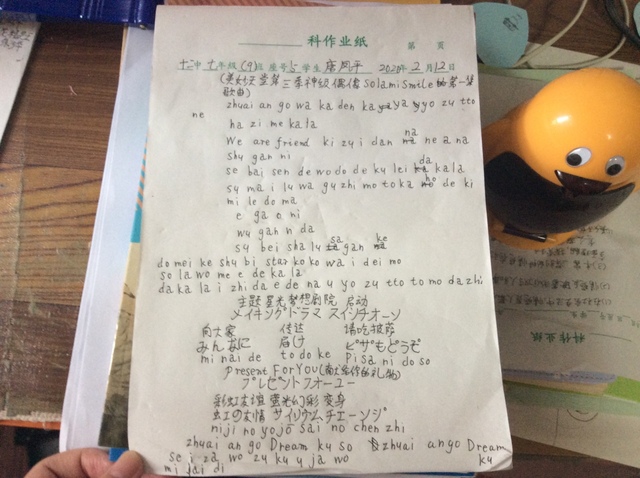 科作业纸 第 页
十二中 七年级(9)班 座号 5 学生 唐凤平 2020年 2月12日
(美妙天堂第三季神级偶像 Solami Smile的第一集
歌曲)
zhuai an go wa ka den ka ya yo zu tto
ne
ha zi me ka la
We are friend ki zu i dan na ne a na
shy gan ni
se bai sen de wo do de ku lei da ka la
sy ma i lu wa gu zhi mo to ka ho de ki
mi le do ma
e ga o ni
wu gan n da
sy bei sha lu sa gan ke
do mei ke shu bi star ko ko wa i dei mo
so la wo me e de ka la
da ka la i zhi da e de na u yo zu tto to mo da zhi
主题 星光梦想剧院 启动
メイキングドラマ スイッチオーン
向大家 传达 请吃披萨
みんなに 届け ピザもどうぞ
mi na i de to do ke Pi sa ni do so
present For YOU(向大家作的礼物)
プレゼントフォーユー
彩虹友谊 萤光幻彩 变身
虹の友情 サイリウムチェーンジ
niji no yo jo sai no chen zhi
zhuai an go Dream ku so zhuai an go Dream
ku
se i za wo zu ku u ja wo
mi jai di